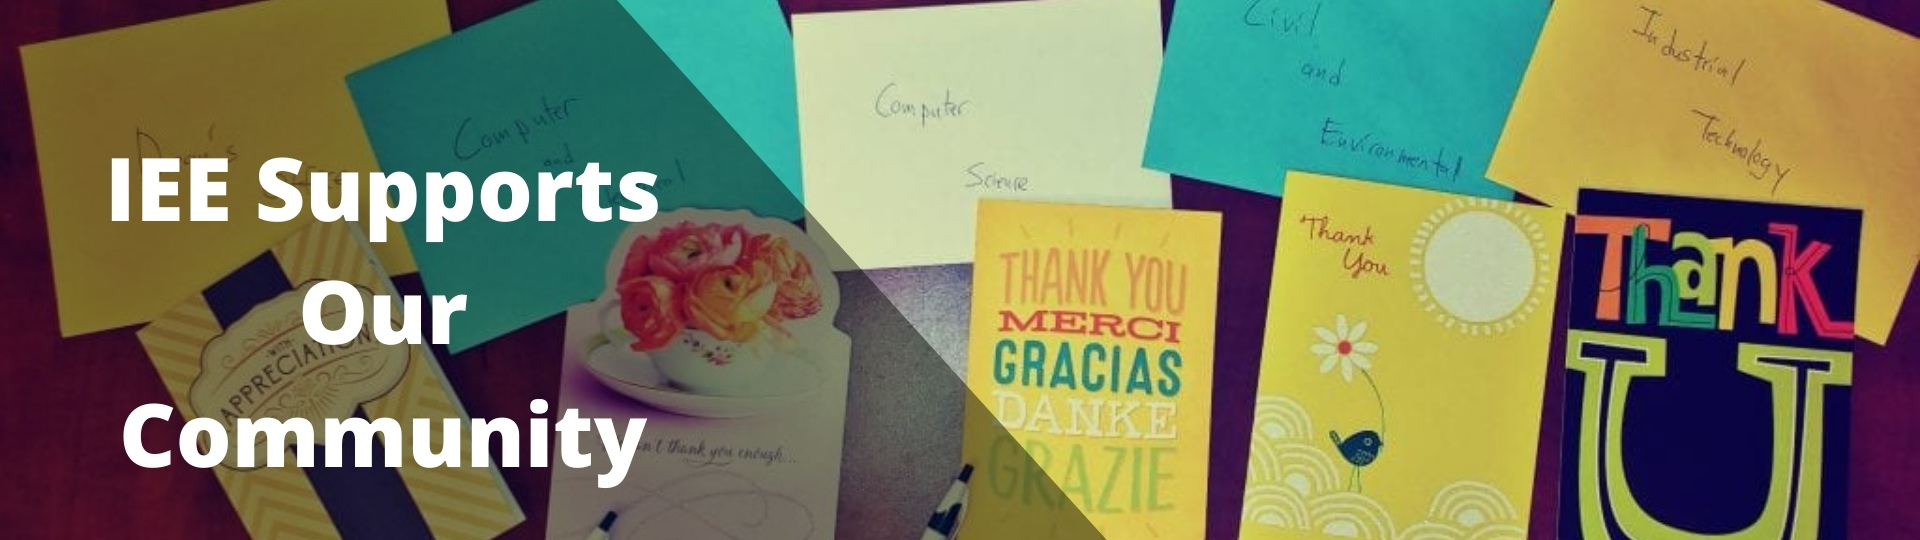 IEE Supports
Our
Community
Dean's
Computer
and
Computer
Science
Civil
and
Environmental
Industrial
Technology
WITH
APPRECIATION
thank you enough...
THANK YOU
MERCI
GRACIAS
DANKE
GRAZIE
Thank
You
Thank
U